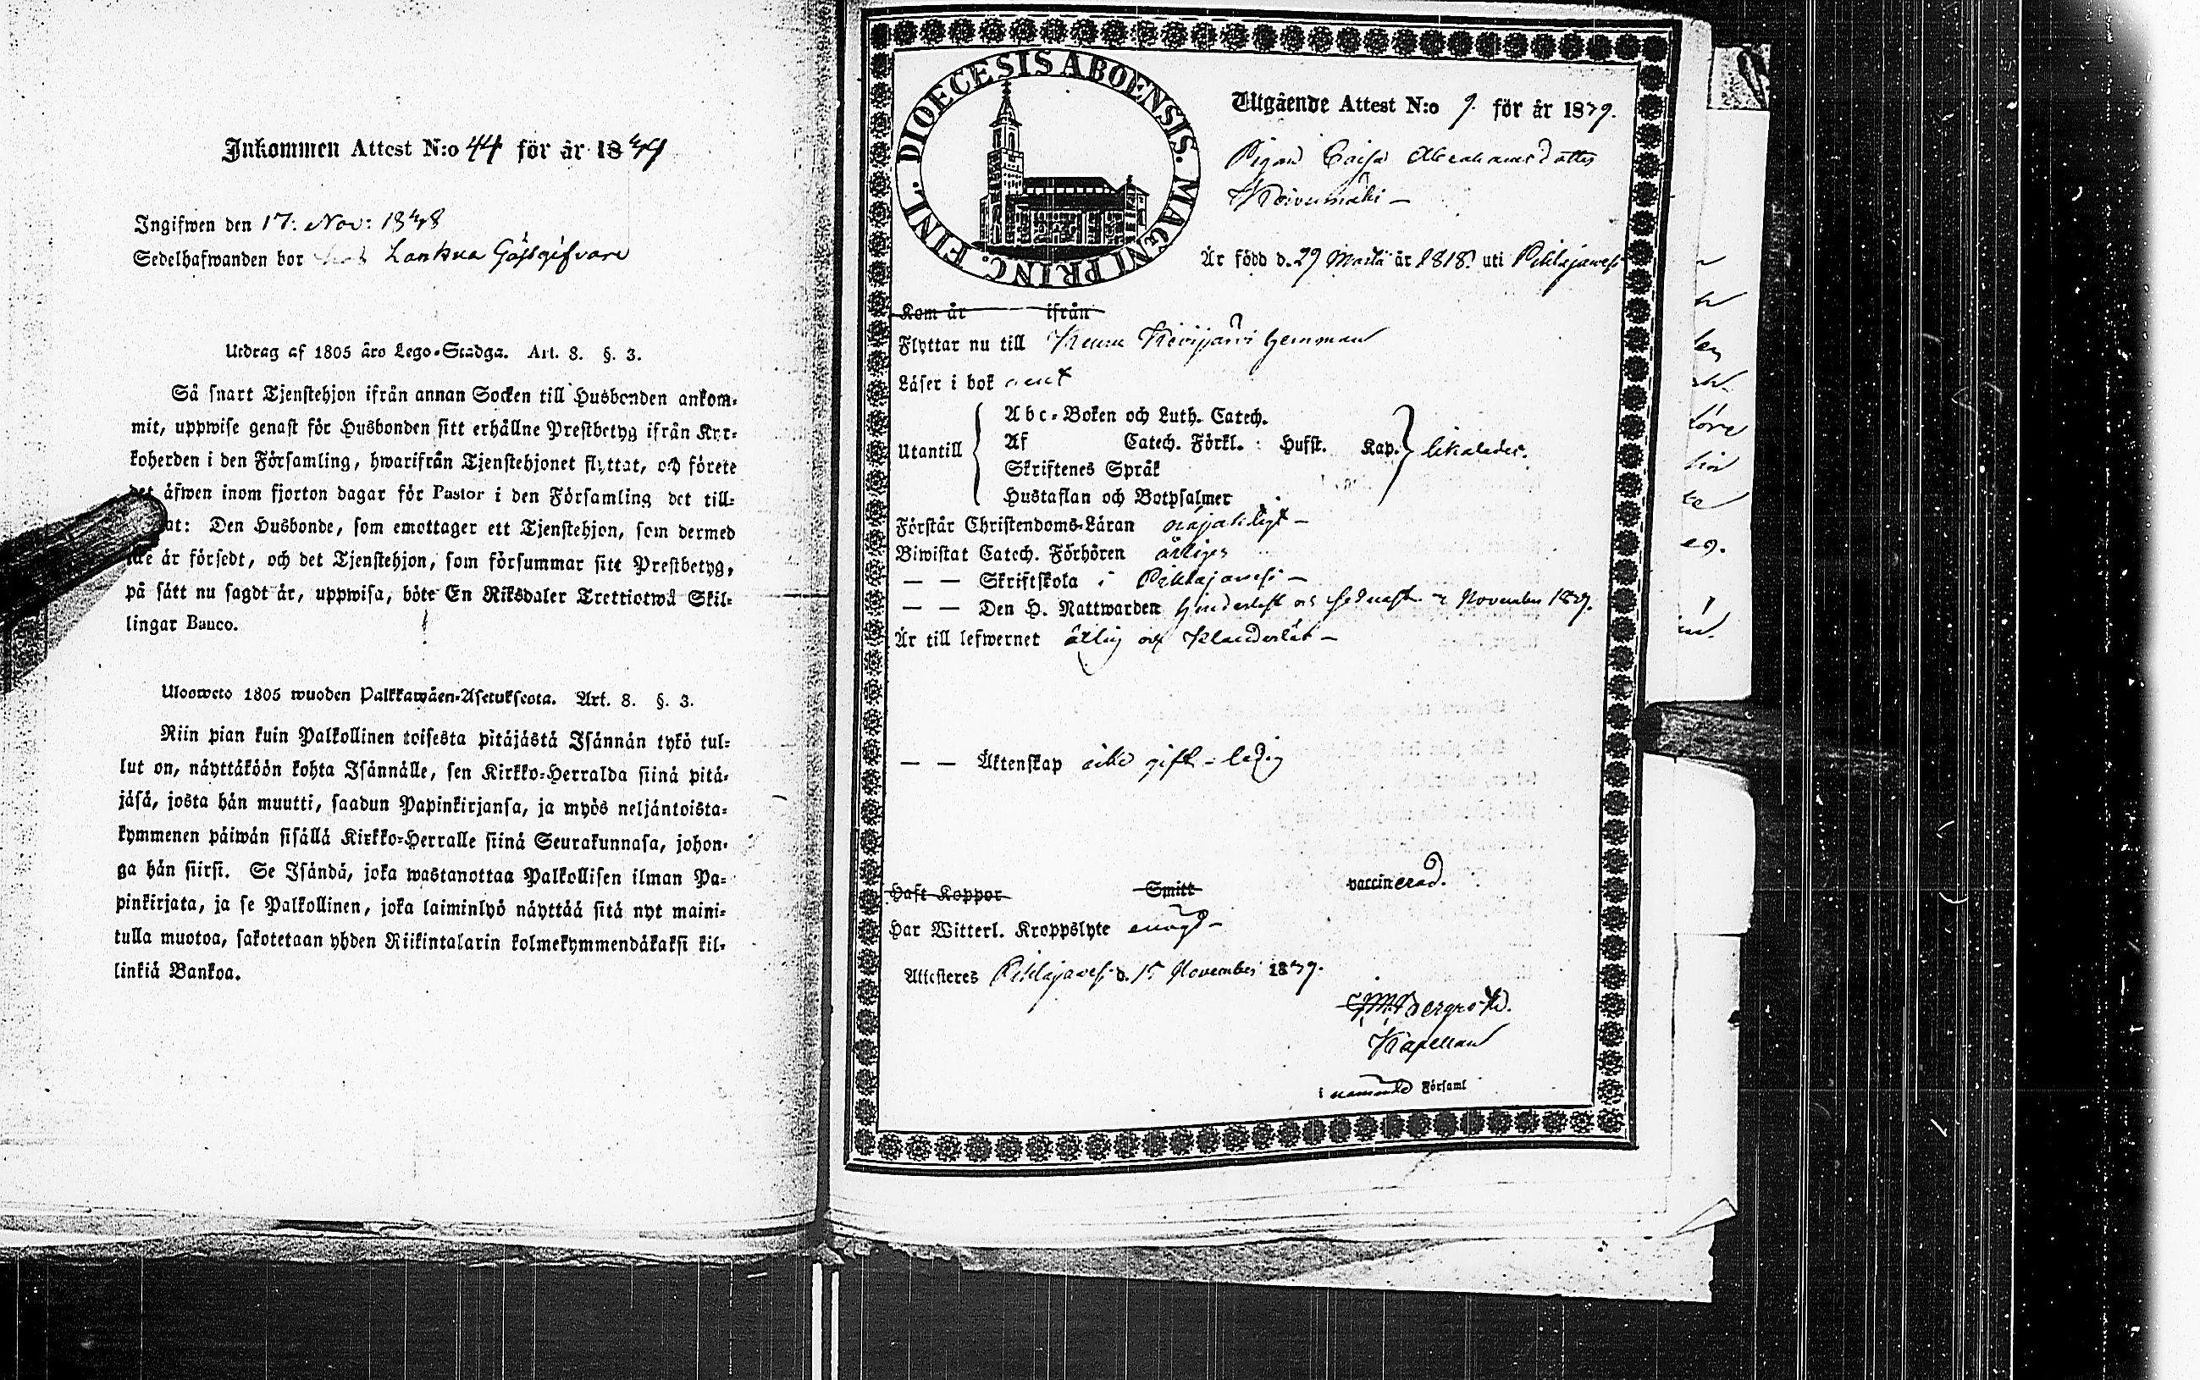 Inkommen Attest N:o 44 för år 1849
Ingifwen den 17: Nov: 1848
Sedelhafwanden bor Lankua Gästgifvare
Utdrag af 1805 års Lego-Stadga. Art. 8. §. 3.
Så snart Tjenstehjon ifrån annan Socken till Husbonden ankom-
mit, uppwise genast för Husbonden sitt erhållne Prestbetyg ifrån Kyr-
koherden i den Församling, hwarifrån Tjenstehjonet flyttat, och förete
det åfwen inom fjorton dagar för Pastor i den Församling det till-
at: Den Husbonde, som emottager ett Tjenstehjon, som dermed
icke är försedt, och det Tjenstehjon, som försummar sitt Prestbetyg,
på sätt nu sagdt är, uppwisa, böte En Riksdaler Trettiotwå Skil-
lingar Banco.
Ulosweto 1805 wuoden Palkkawäen-Asetuksesta. Art. 8. §. 3.
Niin pian kuin Palkollinen toisesta pitäjästä Isännän tykö tul-
lut on, näyttäköön kohta Isännälle, sen Kirkko-Herralda siinä pitä-
jäsä, josta hän muutti, saadun Papinkirjansa, ja myös neljäntoista-
kymmenen päiwän sisällä Kirkko-Herralle siinä Seurakunnasa, johon-
ga hän siirsi. Se Isändä, joka wastanottaa Palkollisen ilman Pa-
pinkirjata, ja se Palkollinen, joka laiminlyö näyttää sitä nyt maini-
tulla muotoa, sakotetaan yhden Riikintalarin kolmekymmendäkaksi kil-
linkiä Bankoa.
DIOECESIS ABOENSIS. MAGNI PRINC. FINL.
Utgående Attest N:o 9. för år 1839.
Pigan Caisa Abrahamsdotter
Koivumäki –
Är född d. 29 Martii år 1818. uti Pihlajawesi
Kom år ifrån
Flyttar nu till Keuru Kivijärvi hemman
Läser i bok rent
Utantill
Abc-Boken och Luth. Catech.
Af Catech. Förkl. : Hufst. Kap. likaledes.
Skriftenes Språk
Hustaflan och Botpsalmer
Förstår Christendoms-Läran nöjaktigt –
Biwistat Catech. Förhören årligen
— — Skriftskola i Pihlajawesi –
— — Den H. Nattwarden och sednast November 1839.
Är till lefwernet ärlig och klanderlös –
— — Äktenskap icke gift – ledig
Haft Koppor Smitt vaccinerad.
Har Witterl. Kroppslyte
Attesteres Pihlajawesi d. 15 November 1839.
Bergroth.
Kapellan
i nämnde Församl